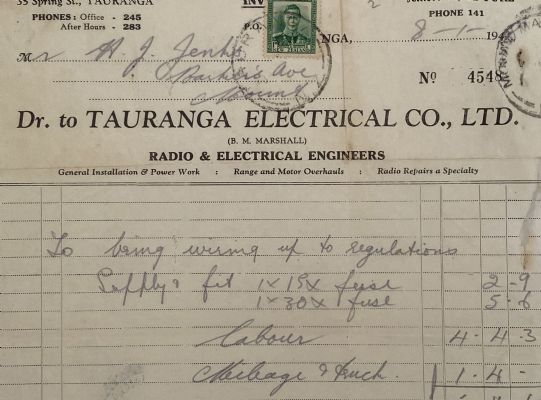 35 Spring St., TAURANGA
PHONES: Office - 245
After Hours - 283
INV
P.O.
PHONE 141
NGA, 8-1- 194
Mr A. J. Jenks
Ave
Mount
No 4548
Dr. to TAURANGA ELECTRICAL CO., LTD.
(B. M. MARSHALL)
RADIO & ELECTRICAL ENGINEERS
General Installation & Power Work : Range and Motor Overhauls : Radio Repairs a Specialty
To bring wiring up to regulations
Supply & fit 1 x 15x fuse 2 - 9
1 x 30x fuse 5 . 6
Labour 4 . 4 . 3
Mileage & Truck. 1 . 4 -